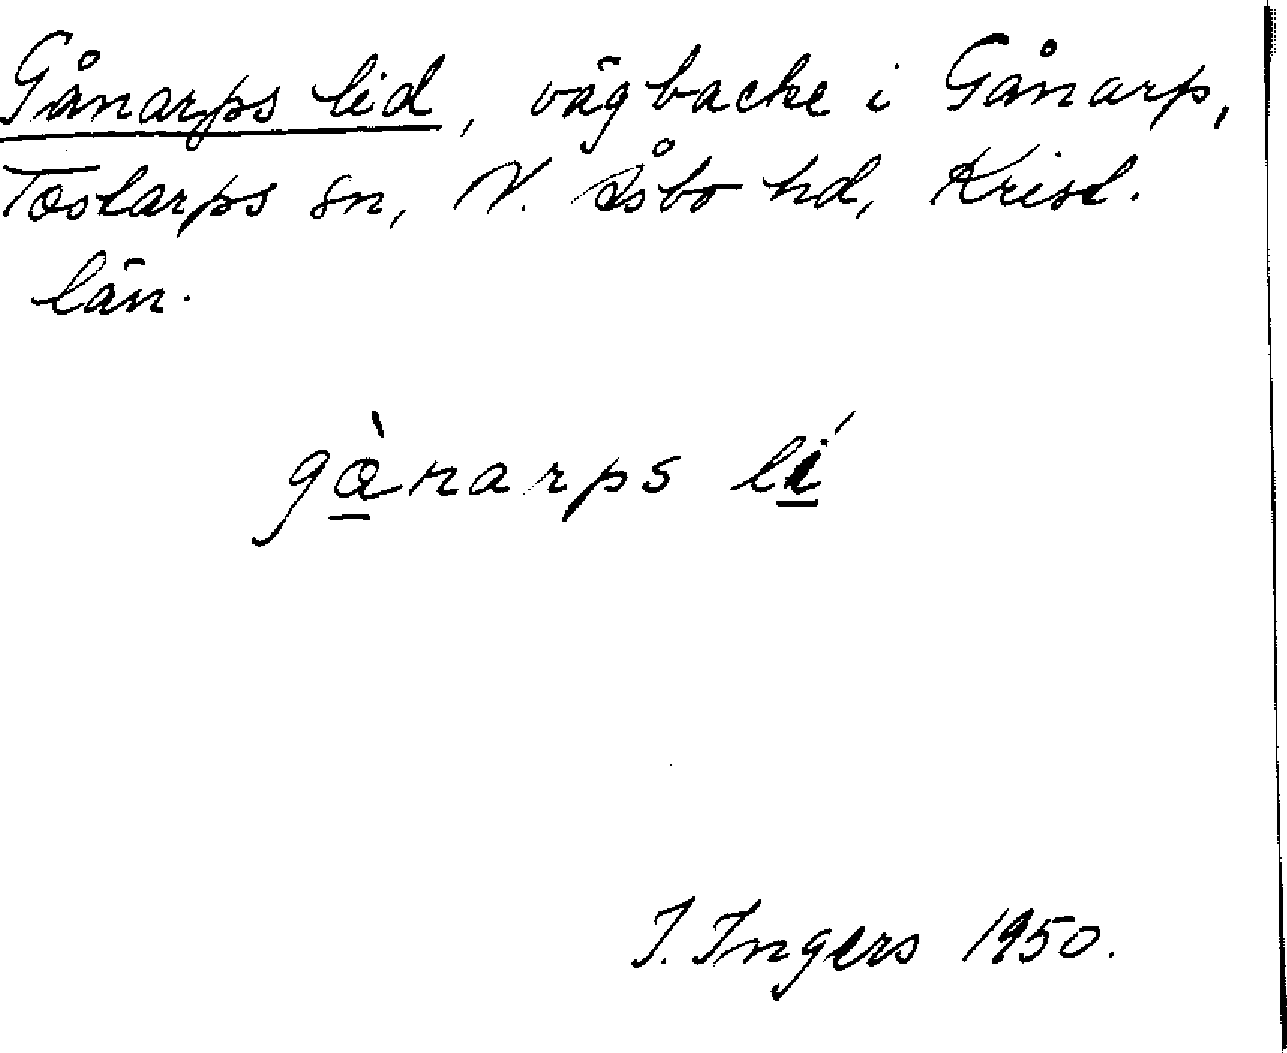 Gånarps lid, vägbacke i Gånarp,
Tåstarps sn, N. Åsbo hd, Krist.
län.
gànarps lí
I. Ingers 1950.